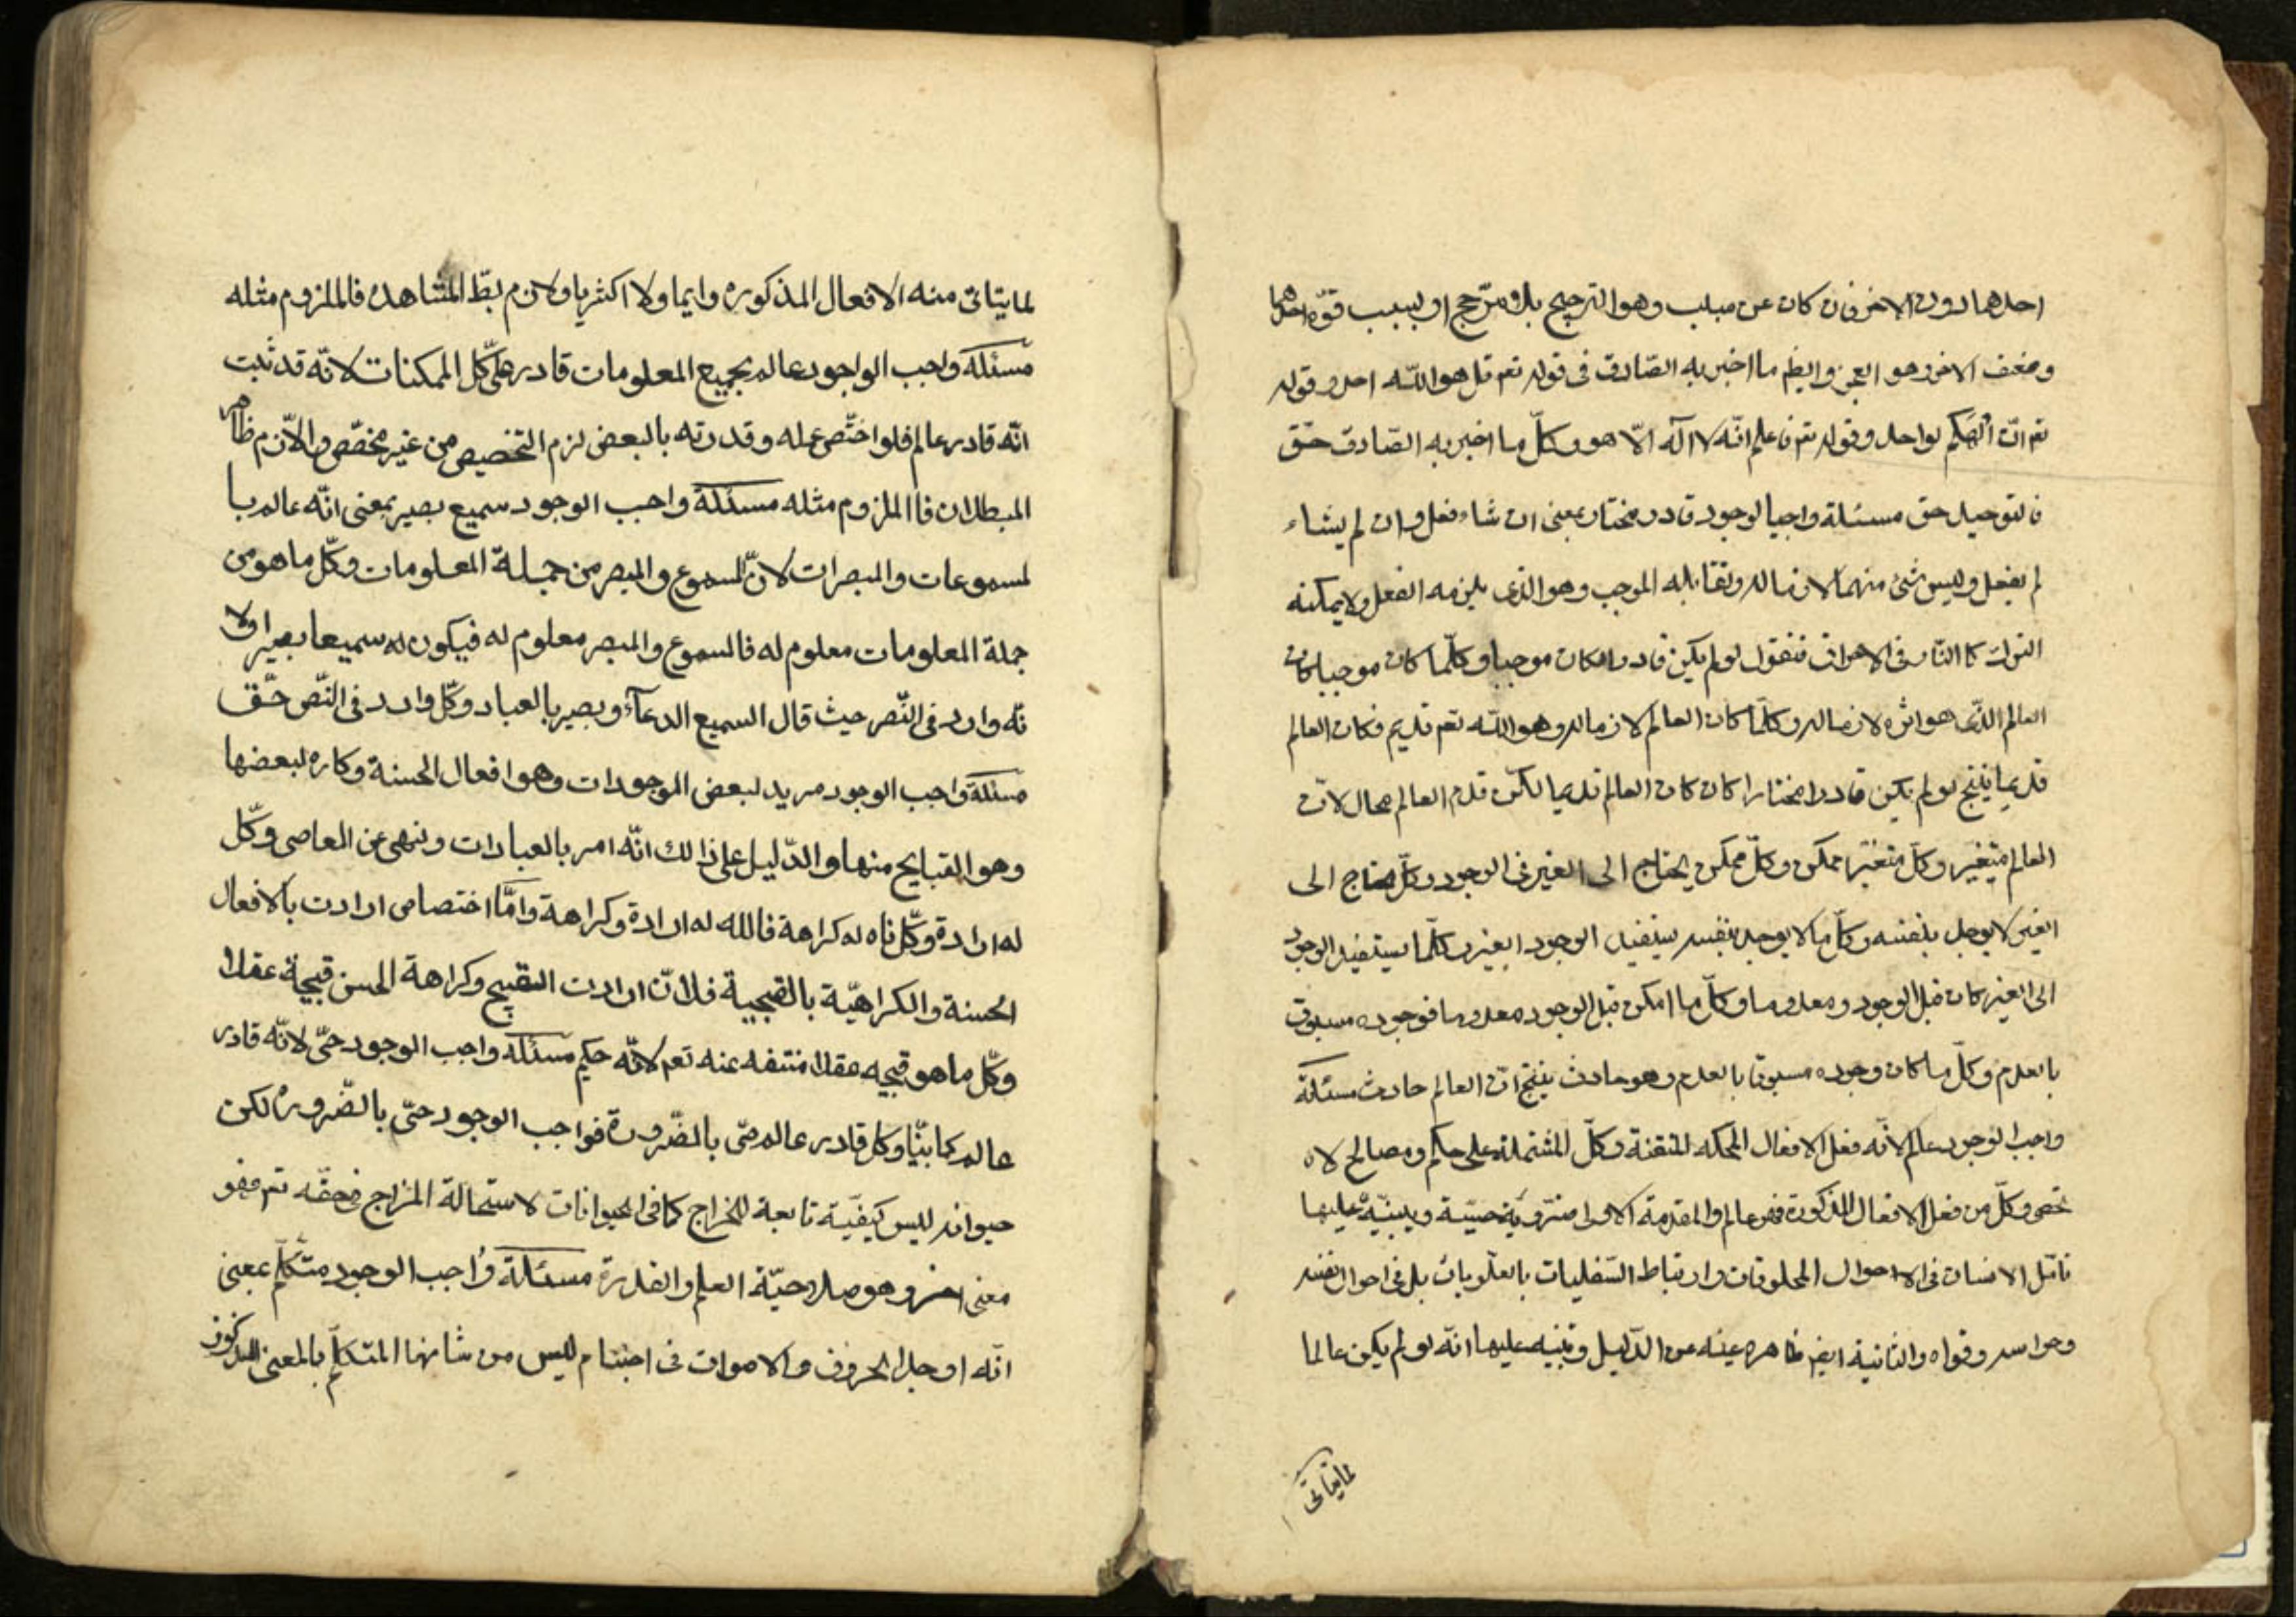 احدهما دون الاخر فان كان عن مبلب وهو الترجيح بلا مرّجح او لسبب قوّة احدهما
وضعف الاخر وهو العجز وايظم ما اخبر به الصّادق فى قوله تعم قل هو اللّه احد وقوله
تعم انّ الٓهكم لواحد وقوله تعم فاعلم انّه لا اله الّا هو وكلّ ما اخبر به الصّادق حقّ
فالتوحيد حق مسئلة واجب الوجود قادر مختار بمعنى ان شاء فعل وان لم يشاء
لم يفعل وليس شئ منهما لازما له ويقابله الموجب وهو الذى يلزمه الفعل ولا يمكنه
الترك كالنّار فى الاحراق فنقول لو لم يكن قادرا لكان موجبا وكلّما كان موجبا كان
العالم الّذى هو اثره لازما له وكلّما كان العالم لازما له وهو اللّه تعم قديم فكان العالم
قديما ينتج لو لم يكن قادرا مختارا كان كان العالم قديما لكن قدم العالم محال لانّ
العالم متغيّر وكلّ متغيّر ممكن وكلّ ممكن يحتاج الى الغير فى الوجود وكلّ محتاج الى
الغير لا يوجد بنفسه وكلّ ما لا يوجد بنفسه يستفيد الوجود الغير وكلّما يستفيد الوجود
الى الغير كان قبل الوجود ومعدوما وكلّ ما امكن قبل الوجود معدوما فوجوده مسبوق
بالعدم وكلّ ما كان وجوده مسبوقا بالعدم وهو حادث ينتج انّ العالم حادث مسئلة
واجب الوجود عالم لانّه فعل الافعال المحكمه المتقنة وكلّ المشتملة على حكم ومصالح لا
تحصى وكلّ من فعل الافعال المذكورة فهو عالم والمقدمة الاولى ضروريّة حسّية ويبنيّه عليها
تامّل الانسان فى الاحوال المخلوقات وارتباط السّفليات بالعلويات بل فى احوال نفسه
وحواسه وقواه والثانية ايض ظاهره غنيه عن الدّليل وتنبيه عليها انّه لو لم يكن عالما
لما يتاتى
لما يتاتى منه الافعال المذكوره دايما ولا اكثريا ولازم بطّ المشاهده فالملزوم مثله
مسئلة واجب الواجود عالم بجميع المعلومات قادر على كلّ الممكنات لانّه قد ثبت
انّه قادر عالم فلو اختّص عمله وقدرته بالبعض لزم التخصيص من غير مخصّص والّازم ظاهر
المبطلان فاالملزوم مثله مسئلة واجب الوجود سميع بصير بمعنى انّه عالم با
لمسموعات والمبصرات لانّ المسموع والمبصر من جملة المعلومات وكلّ ما هو من
جملة المعلومات معلوم له فالمسموع والمبصر معلوم له فيكون له سميعا بصيرا ولا
نّه وارد فى النّص حيث قال السميع الدعآء وبصير بالعباد وكلّ وارد فى النّص حقّ
مسئلة واجب الوجود مريد لبعض الموجودات وهو افعال الحسنة وكاره لبعضها
وهو القبايح منها والدّليل على ذالك انّه امر بالعبادات ونهى عن المعاصى وكلّ
له ارادة وكلّ ناه له كراهة فالله له ارادة وكراهة وامّا اختصاص ارادت بالافعال
الحسنة والكراهيّة بالقبحية فلانّ ارادت القبيح وكراهة الحسن قبيحة عقلا
وكلّ ما هو قبيحه عقلا منتفه عنه تعم لانّه حكيم مسئلة واجب الوجود حىّ لانّه قادر
عالم كما بيّنا وكل قادر عالم حىّ بالضّرورة فواجب الوجود حىّ بالضّروره لكن
حيواته ليس كيفيّة تابعة للمزاج كما فى الحيوانات لاستحالة المزاج فى حقّه تعم فهو
معنى اخر وهو صلاحيّة العلم والقدرة مسئلة واجب الوجود متكلّم بمعنى
انّه اوجد الحروف والاصوات فى اجسام ليس من شانها المتكلّم بالمعنى المذكور